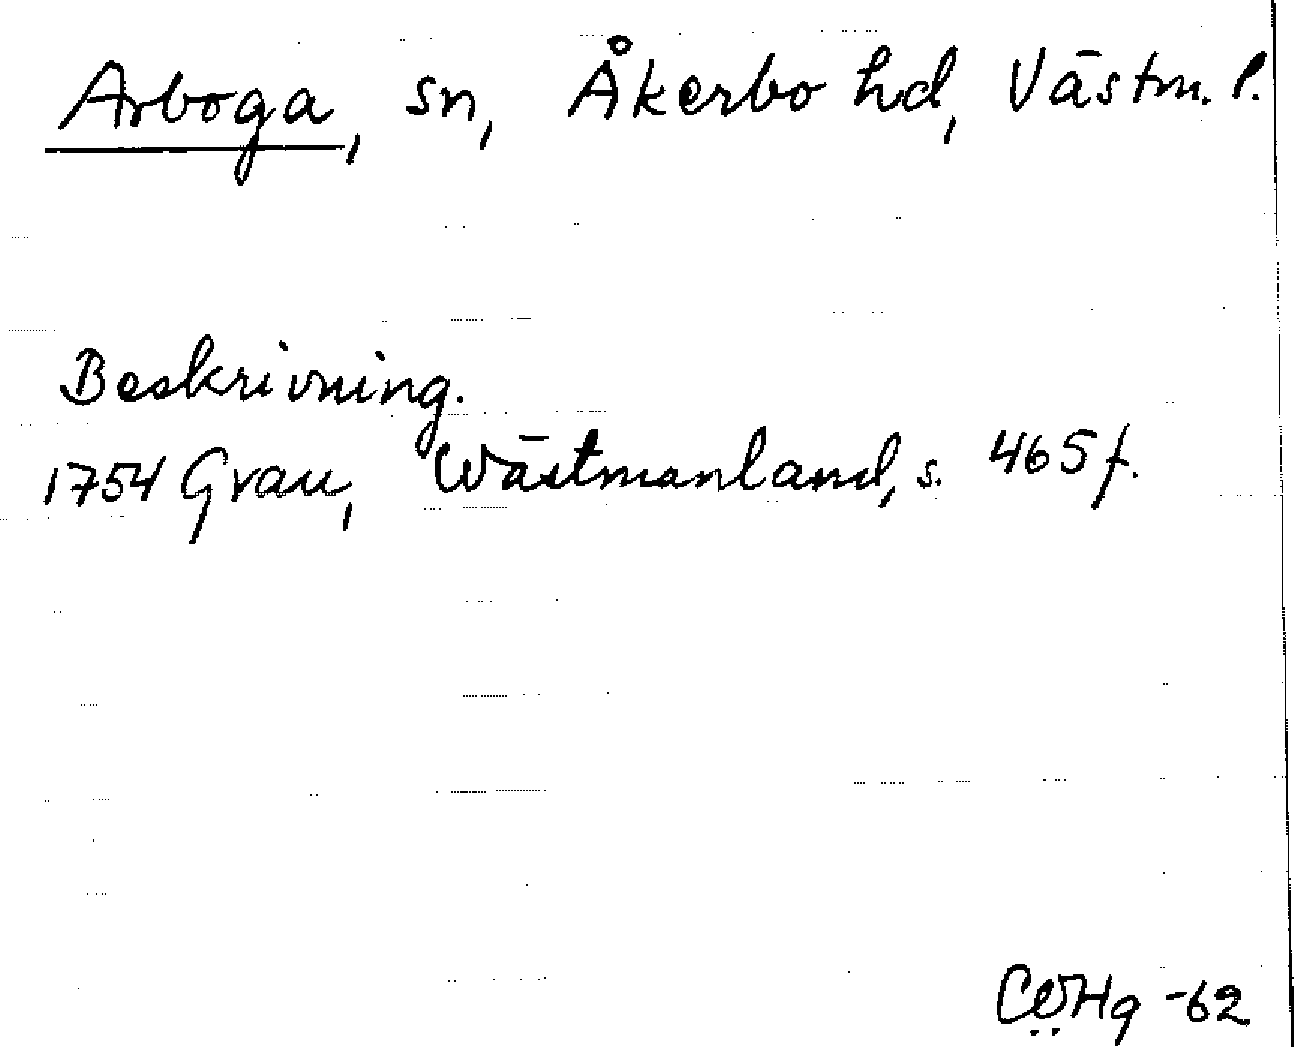 Arboga, sn, Åkerbo hd, Västm. l.
Beskrivning.
1754 Grau, Wästmanland, s. 465 f.
-62